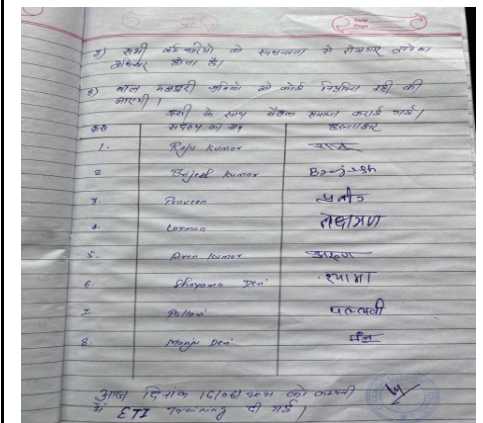 5) सभी कर्मचारियों को स्वतन्त्रता से रोजगार करने का
अधिकार होता है।
6) बाल मजदूरी श्रमिको की कोई नियुक्ति नही की
जाएगी।
इसी के साथ बैठक समाप्त कराई गई।
क्रस सदस्य का नाम हस्ताक्षर
1. Raju Kumar राजू
2 Brijesh Kumar Brijesh
3. Praveen प्रवीन
4. Laxman लक्ष्मण
5. Arun Kumar अरुण
6. Shayama Devi श्यामा
7. Pallavi पल्लवी
8. Manju Devi मंजू
आज दिनांक 16/06/ को कम्पनी
में ETI Training दी गई।